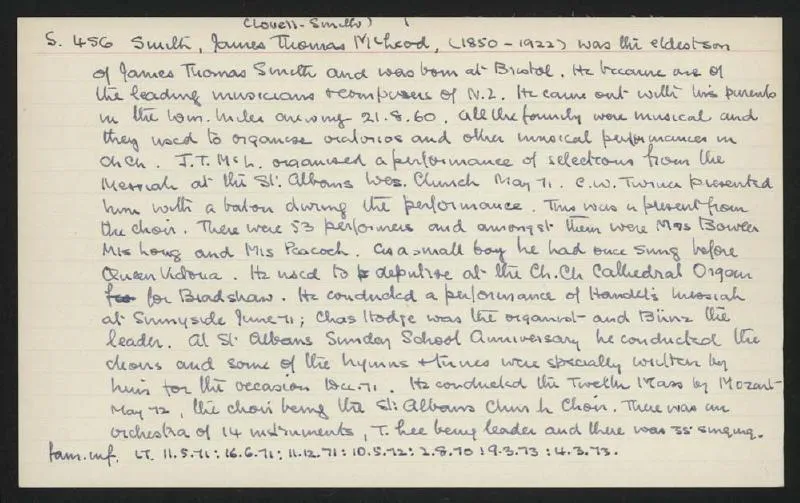 (Lovell-Smith)
S. 456 Smith, James Thomas McLeod, (1850 - 1922) was the eldest son
of James Thomas Smith and was born at Bristol. He became one of
the leading musicians & composers of N.Z. He came out with his parents
in the Wm. Miles arriving 21.8.60. All the family were musical and
they used to organise oratorios and other musical performances in
ChCh. J.T. McL. organised a performance of selections from the
Messiah at the St. Albans Wes. Church May 71. C.W. Turner presented
him with a baton during the performance. This was a present from
the choir. There were 53 performers and amongst them were Mrs Bowler
Mrs Long and Mis Peacock. As a small boy he had once sung before
Queen Victoria. He used to deputise at the Ch.Ch Cathedral Organ
for Bradshaw. He conducted a performance of Handel's Messiah
at Sunnyside June 71; Chas Hodge was the organist and Bünz the
leader. At St Albans Sunday School Anniversary he conducted the
choirs and some of the hymns & tunes were specially written by
him for the occasion Dec. 71. He conducted the Twelth Mass by Mozart
May 72, the choir being the St: Albans Church Choir. There was an
orchestra of 14 instruments, T. Lee being leader and there was 35 singing.
fam. inf. LT. 11.5.71: 16.6.71: 11.12.71: 10.5.72: 2.8.70: 9.3.73: 4.3.73.